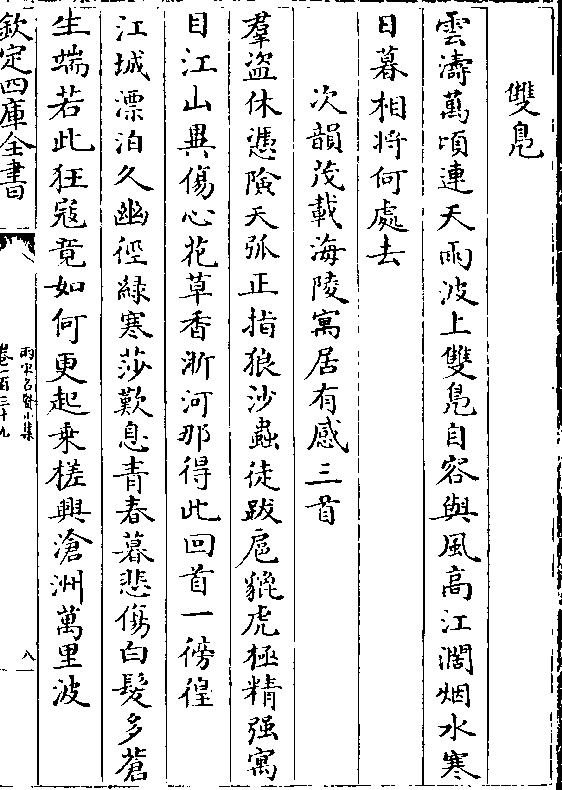 雙鳬
雲濤萬頃連天雨波上雙鳬自容與風高江濶烟水寒
日暮相將何處去
次韻茂載海陵寓居有感三首
羣盜休憑險天弧正指狼沙蟲徒跋扈貔虎極精强寓
目江山異傷心花草香淅河那得此回首一徬徨
江城漂泊久幽徑緑寒莎歎息青春暮悲傷白髮多蒼
生端若此狂宼竟如何更起乗槎興滄洲萬里波
欽定四庫全書
兩宋名賢小集
卷一百三十九
八